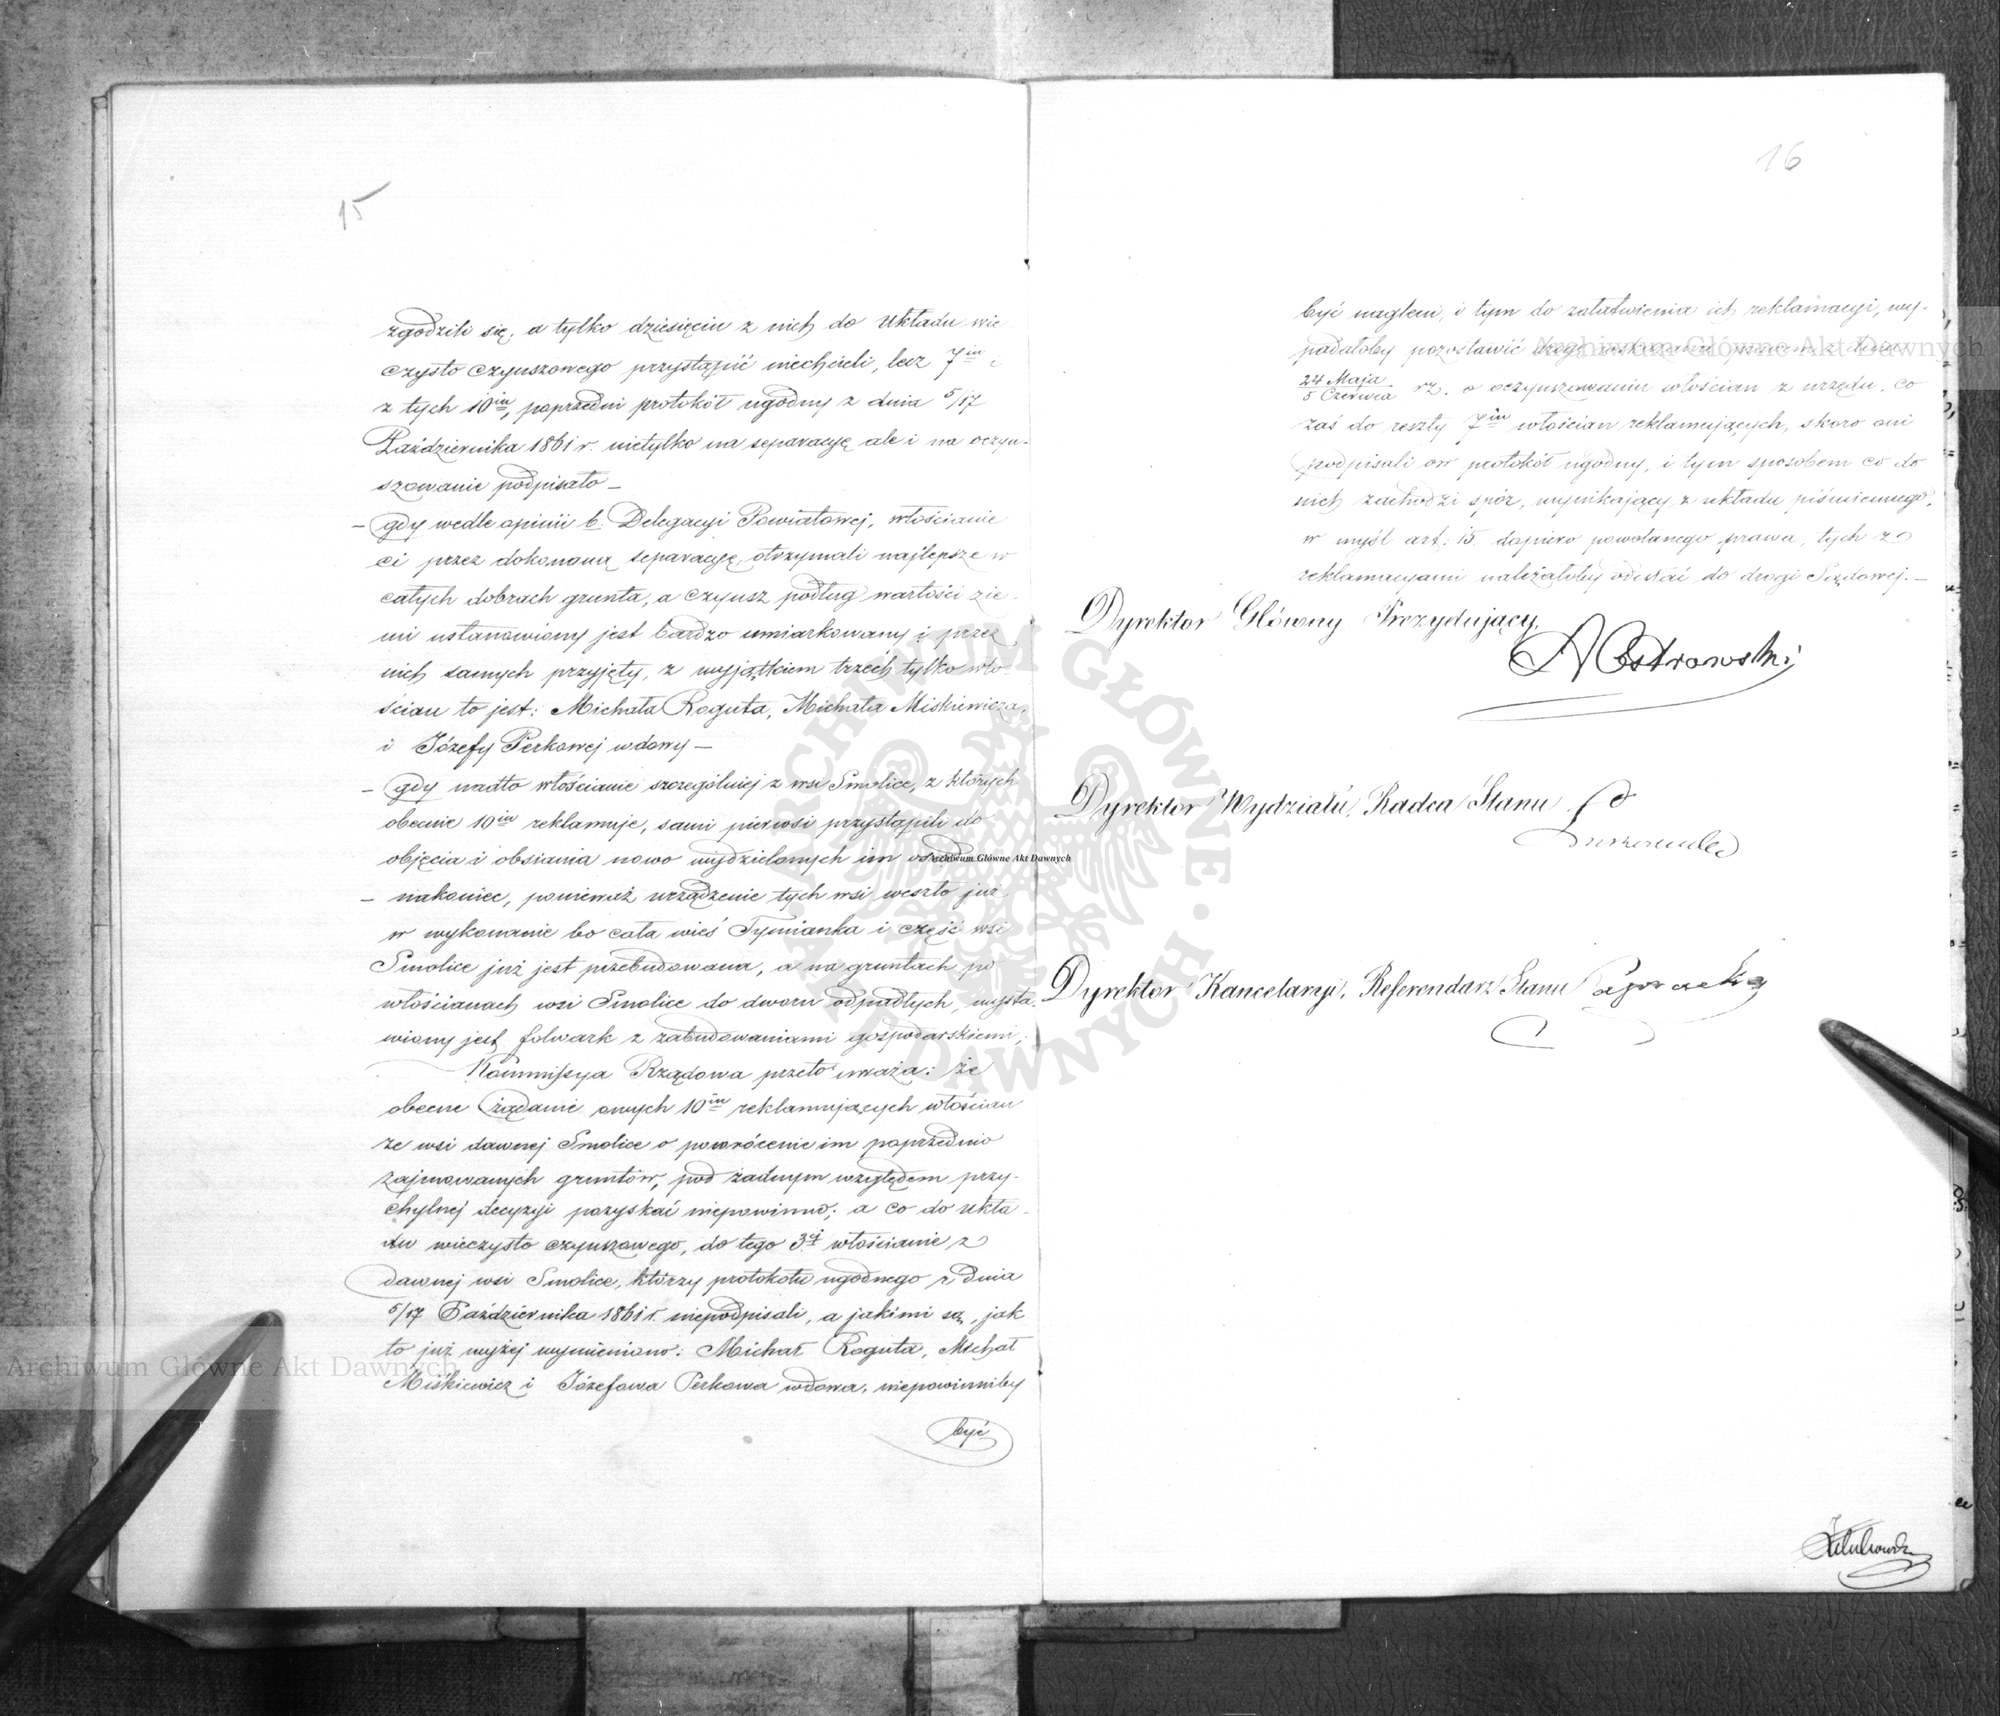 15
zgodzili się, a tylko dziesięciu z nich do układu wie
czysto czynszowego przystąpić niechcieli, lecz 7iu
z tych 10iu, poprzedni protokół ugodny z dnia 5/17
Października 1861 r. nietylko na separacyę ale i na oczyn-
szowanie podpisało —
— gdy wedle opinii b. Delegacyi Powiatowej, włościanie
ci przez dokonaną separacyę, otrzymali najlepsze w
całych dobrach grunta, a czynsz podług wartości zie-
mi ustanowiony jest bardzo umiarkowany i przez
nich samych przyjęty, z wyjątkiem trzech tylko wło-
ścian to jest: Michała Roguta, Michała Miskiewicza,
i Józefy Perkowej wdowy —
— gdy nadto włościanie szczególniej z wsi Smolice, z których
obecnie 10iu reklamuje, sami pierwsi przystąpili do
objęcia i obsiania nowo wydzielonych im osad
— nakoniec, ponieważ urządzenie tych wsi weszło już
w wykonanie bo cała wieś Tymianka i część wsi
Smolice już jest przebudowana, a na gruntach po
włościanach wsi Smolice do dworu odpadłych, wysta-
wiony jest folwark z zabudowaniami gospodarskiemi;
Kommissya Rządowa przeto uważa: że
obecne żądanie owych 10iu reklamujących włościan
ze wsi dawnej Smolice o powrócenie im poprzednio
zajmowanych gruntów, pod żadnym względem przy-
chylnej decyzyi pozyskać niepowinno; a co do ukła-
du wieczysto czynszowego, do tego 3ej włościanie z
dawnej wsi Smolice, którzy protokołu ugodnego z dnia
5/17 Października 1861 r. niepodpisali, a jakimi są, jak
to już wyżej wymieniono: Michał Roguta, Michał
Miśkiewicz i Józefowa Perkowa wdowa, niepowinniby
być
16
być nagleni, i tym do załatwienia ich reklamacyi, wy-
padałoby pozostawić drogę
24 Maja
5 Czerwca rz. o oczynszowaniu włościan z urzędu, co
zaś do reszty 7iu włościan reklamujących, skoro oni
podpisali ów protokół ugodny, i tym sposobem co do
nich zachodzi spór, wynikający z układu piśmiennego,
w myśl art: 15 dopiero powołanego prawa, tych z
reklamacyami należałoby odesłać do drogi Sądowej. —
Dyrektor Główny Prezydujący,
A Ostrowski
Dyrektor Wydziału, Radca Stanu
Dyrektor Kancelaryi, Referendarz Stanu
ARCHIWUM GŁÓWNE AKT DAWNYCH
Archiwum Główne Akt Dawnych
Archiwum Główne Akt Dawnych
Archiwum Główne Akt Dawnych